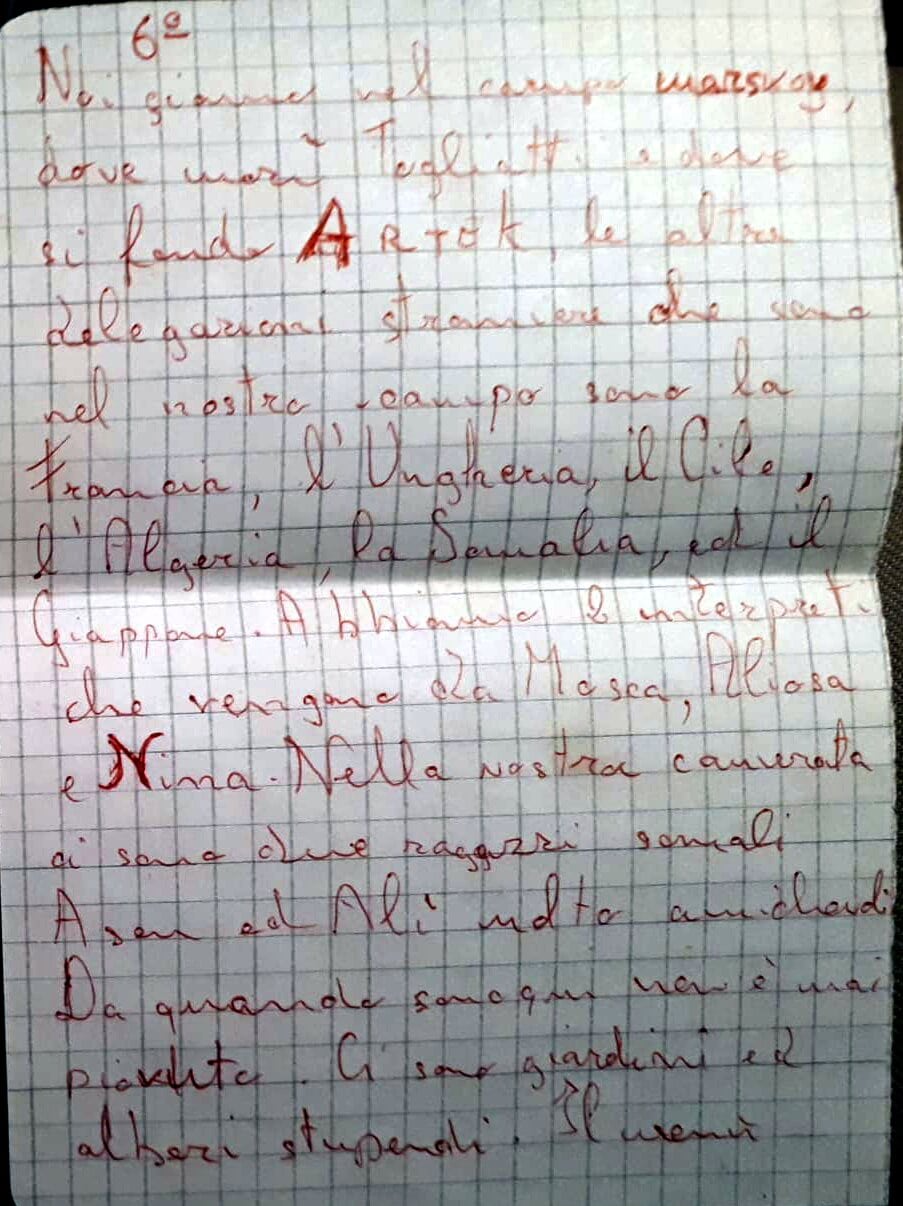 6ª
Noi siamo nel campo morskoy,
dove morì Togliatti e dove
si fondò ARTEK, le altre
delegazioni straniere che sono
nel nostro campo sono la
Francia, l'Ungheria, il Cile,
l'Algeria, la Somalia, ed il
Giappone. Abbiamo 2 interpreti
che vengono da Mosca, Aliosa
e Nina. Nella nostra camerata
ci sono due ragazzi somali
Asen ed Alì molto amichevoli
Da quando sono qui non è mai
piovuto. Ci sono giardini ed
alberi stupendi. Il menù